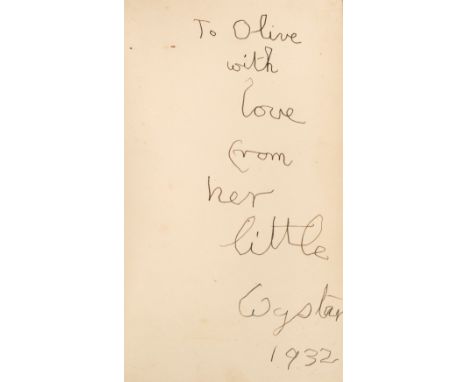 To Olive
with
love
from
her
little
Wystan
1932